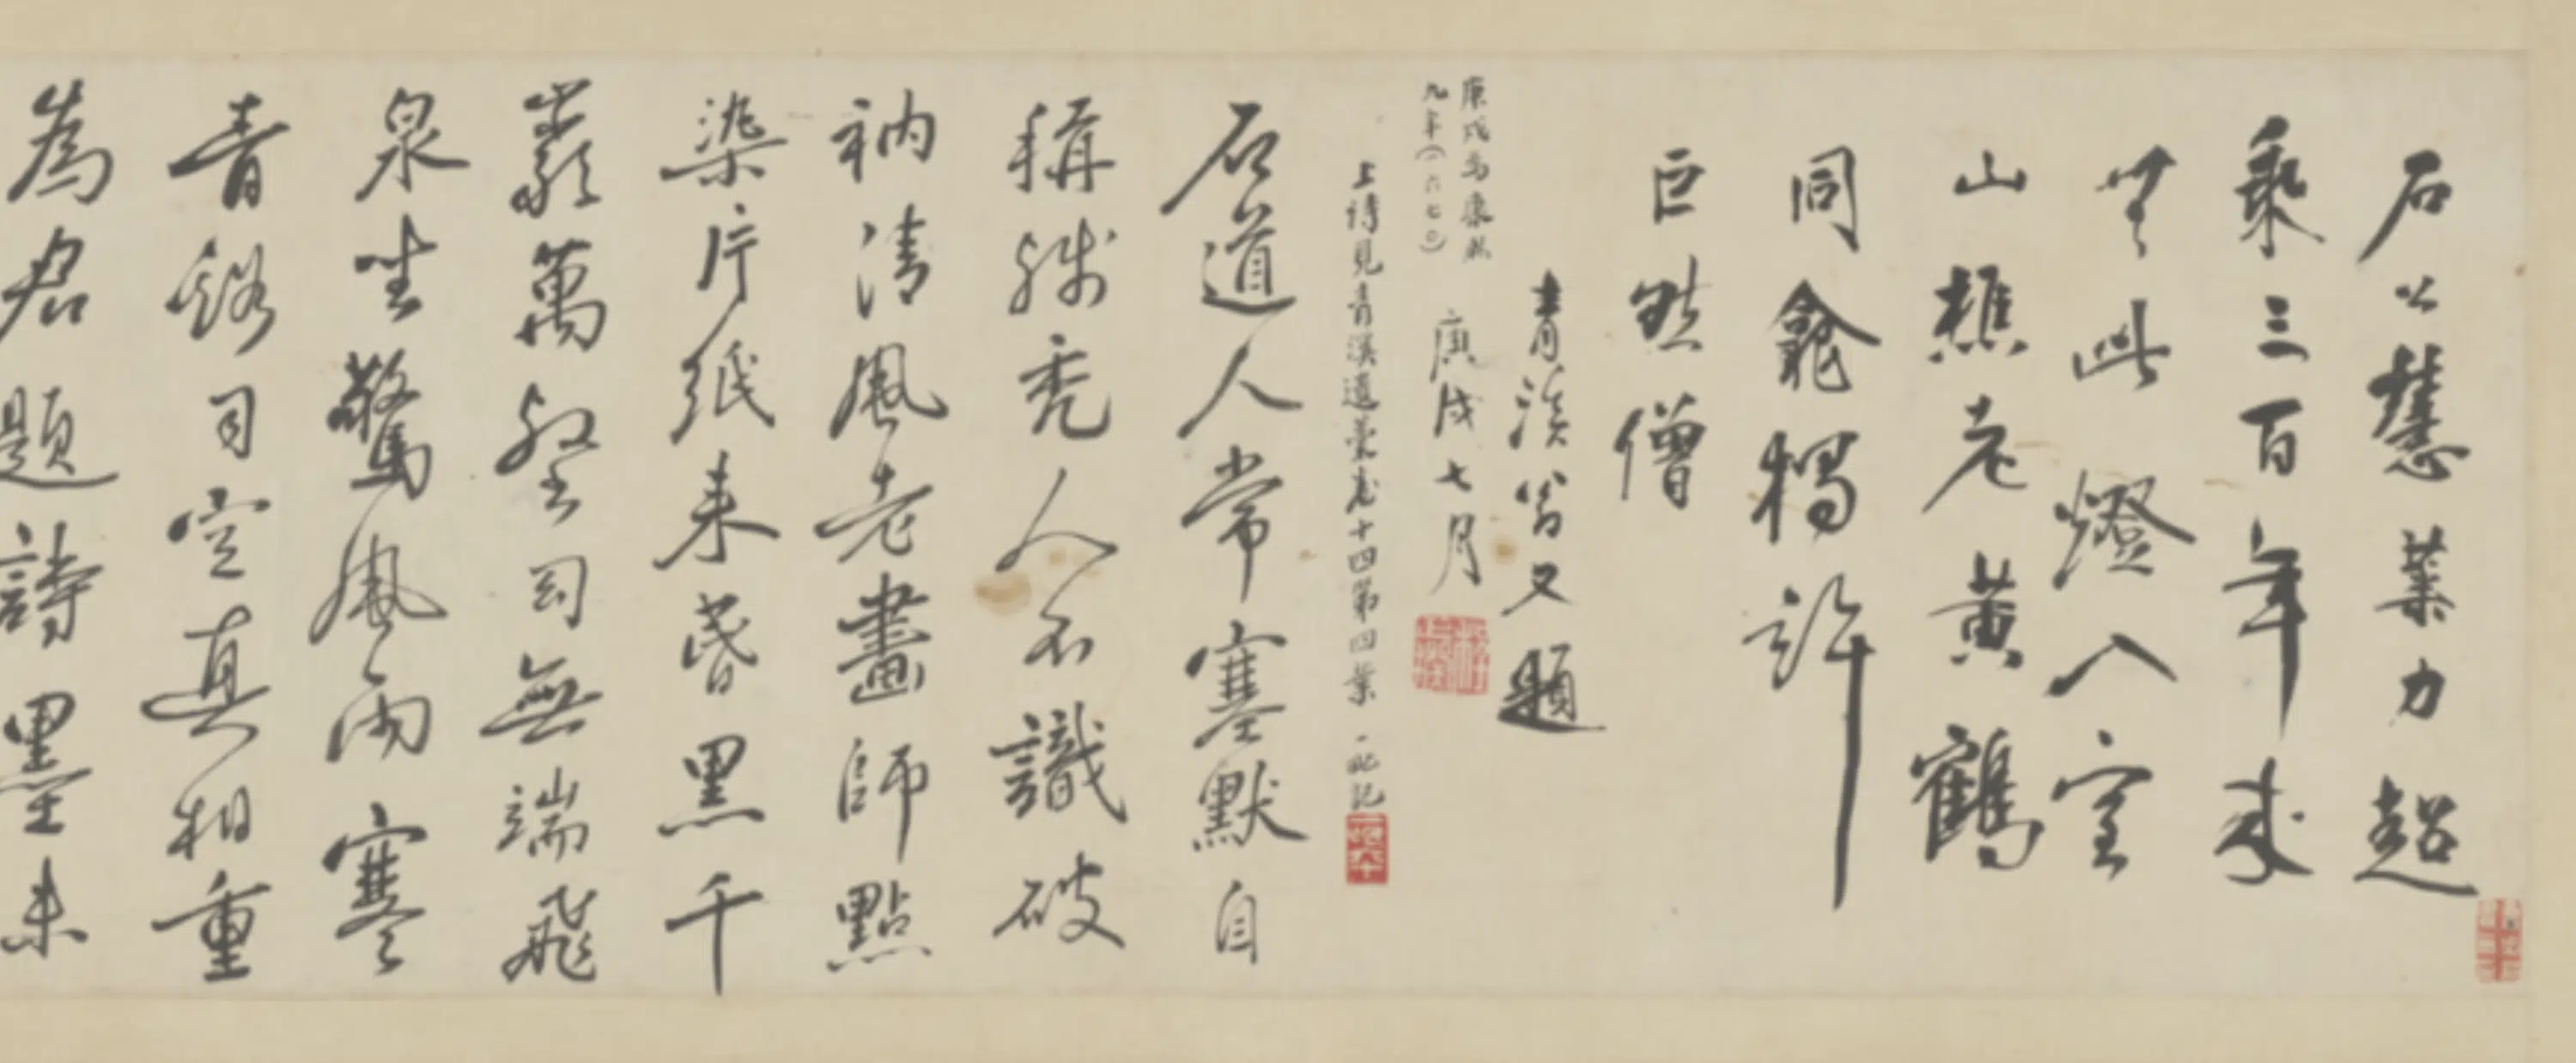 石公慧業力超
乘三百年來
無此燈入室
山樵老黃鶴
同龕獨許
巨然僧
青溪翁又題
庚戌為康熙
九年（一六七〇）
庚戌七月
上詩見青溪遺稾卷十四第四葉 一氓記
石道人常蹇默自
稱殘禿人不識破
衲清風老畫師點
染片紙來昏黑千
巖萬壑無端飛
泉坐驚風雨寒
青谿司空真相重
為君題詩墨未